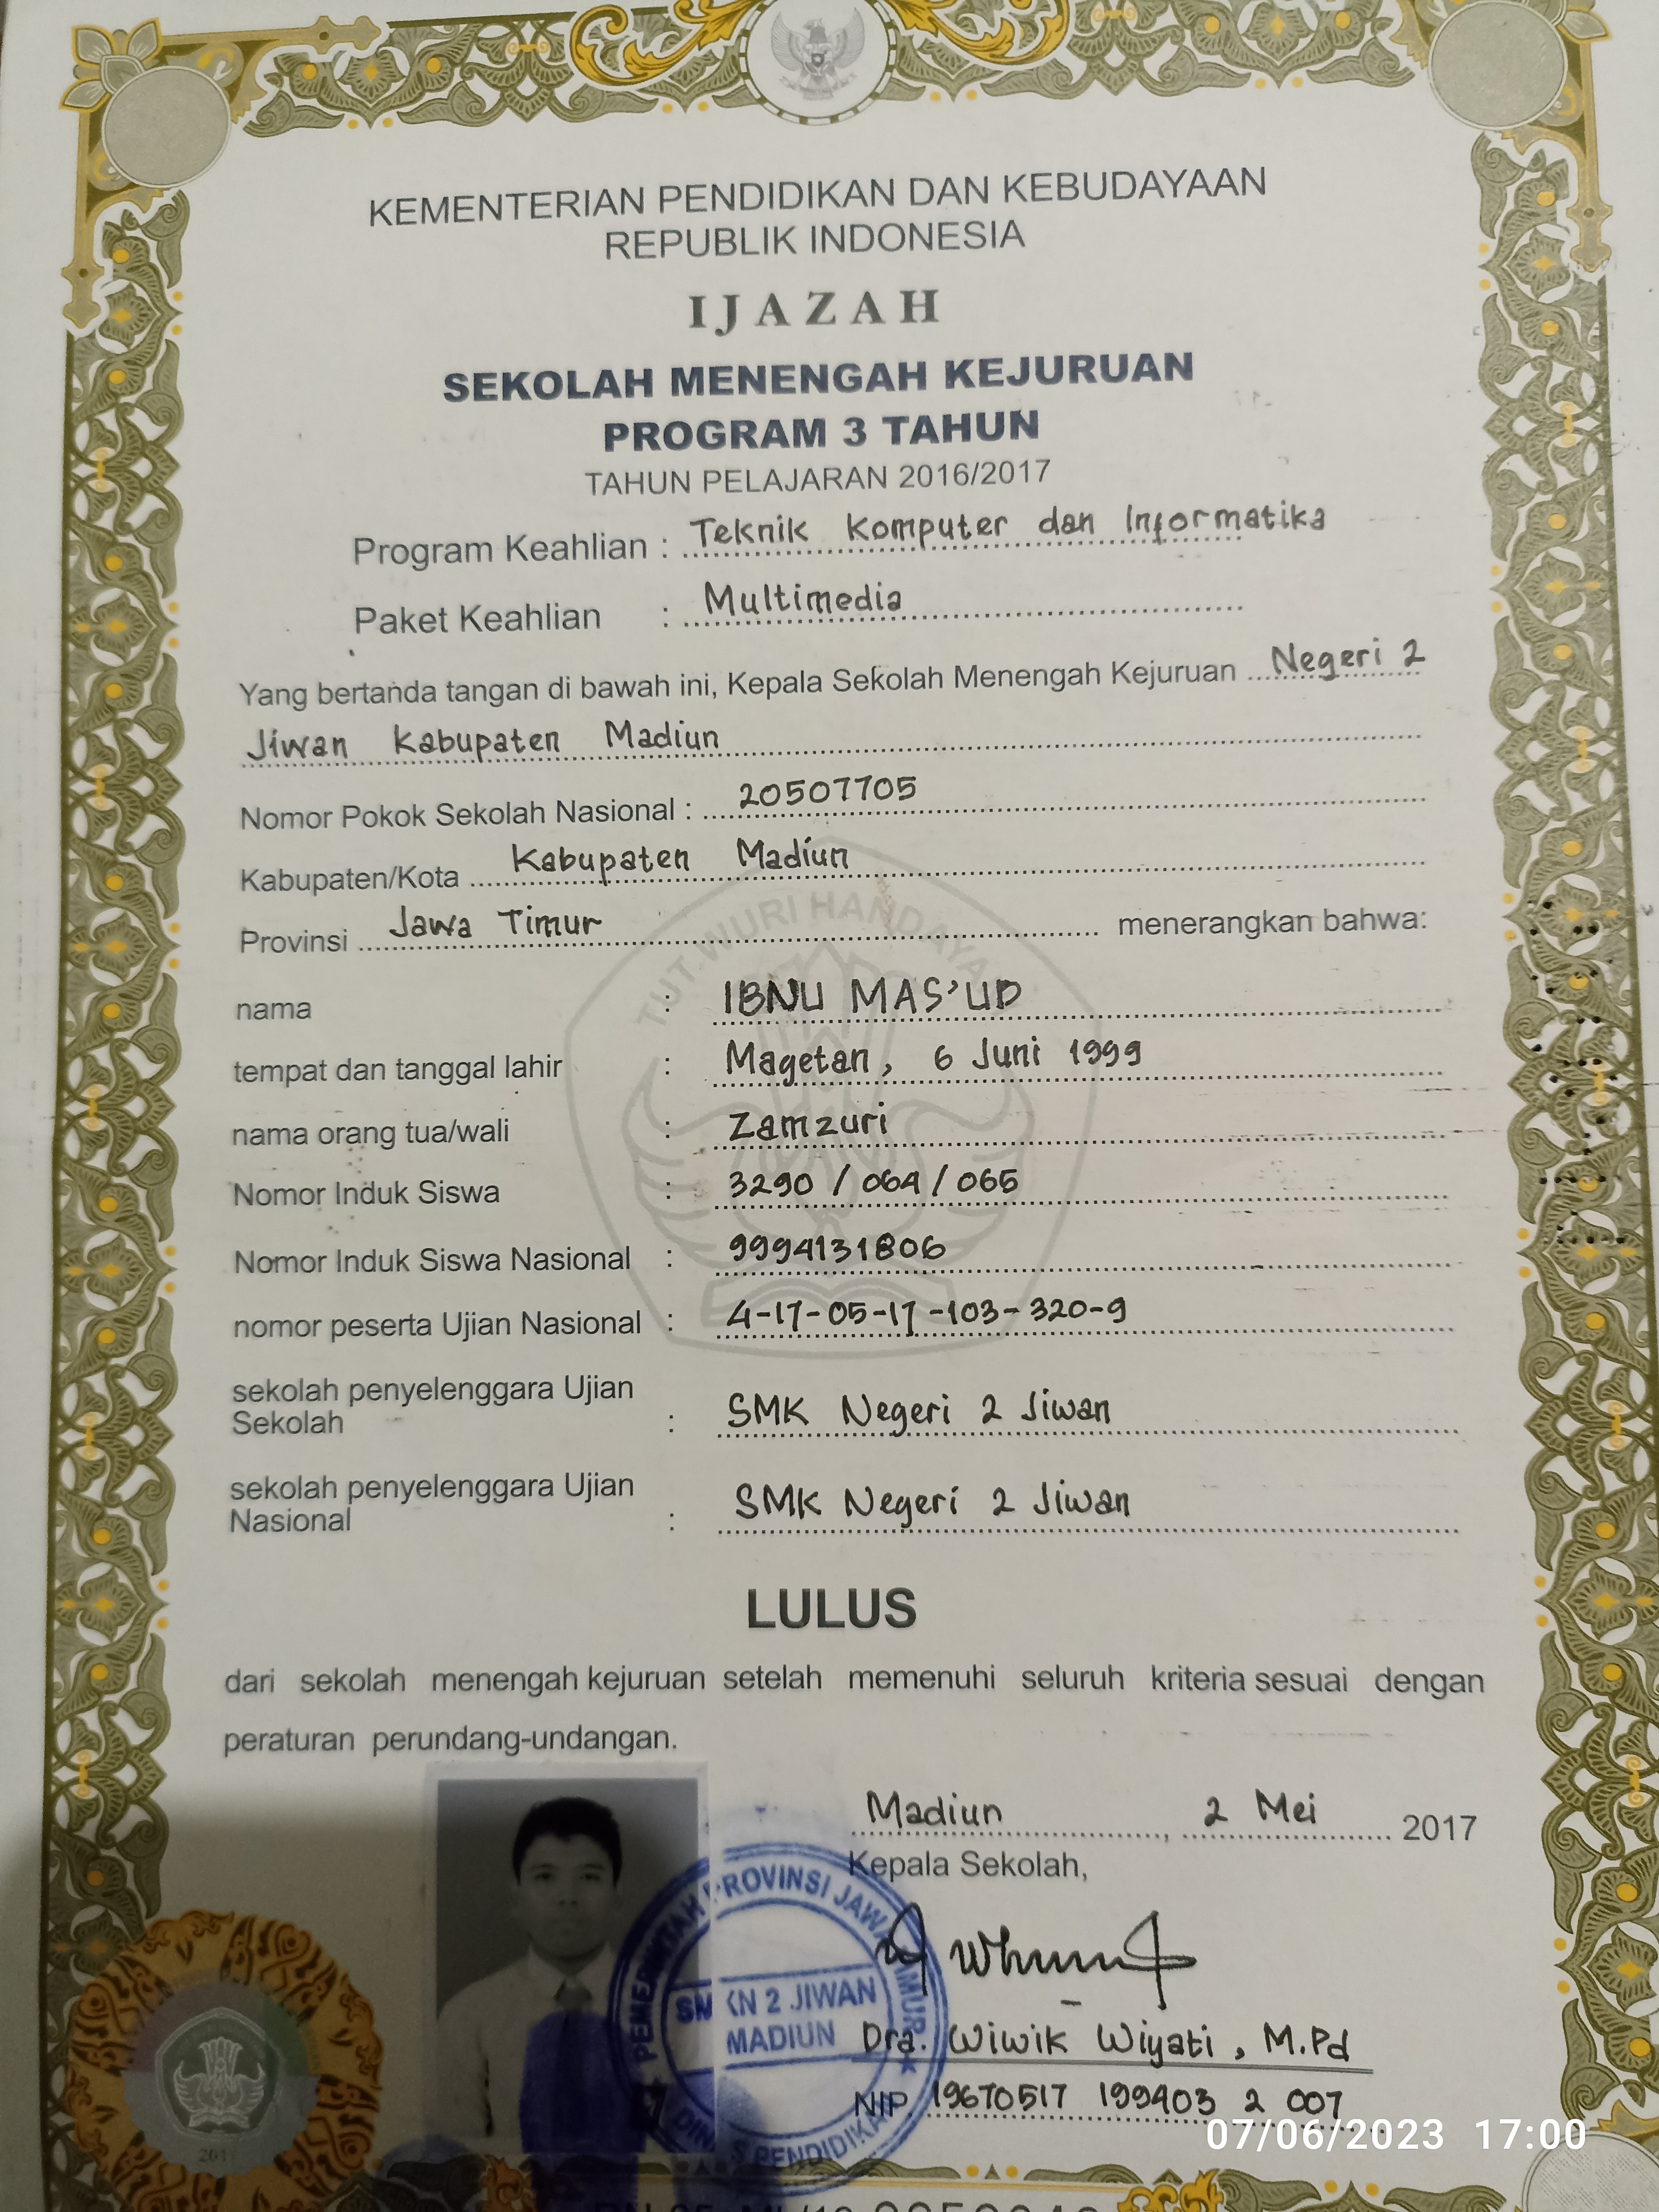 KEMENTERIAN PENDIDIKAN DAN KEBUDAYAAN
REPUBLIK INDONESIA
IJAZAH
SEKOLAH MENENGAH KEJURUAN
PROGRAM 3 TAHUN
TAHUN PELAJARAN 2016/2017
Program Keahlian : Teknik Komputer dan Informatika
Paket Keahlian : Multimedia
Yang bertanda tangan di bawah ini, Kepala Sekolah Menengah Kejuruan Negeri 2
Jiwan Kabupaten Madiun
Nomor Pokok Sekolah Nasional : 20507705
Kabupaten/Kota Kabupaten Madiun
Provinsi Jawa Timur menerangkan bahwa:
TUT WURI HANDAYANI
nama : IBNU MAS'UD
tempat dan tanggal lahir : Magetan, 6 Juni 1999
nama orang tua/wali : Zamzuri
Nomor Induk Siswa : 3290 / 064 / 065
Nomor Induk Siswa Nasional : 9994131806
nomor peserta Ujian Nasional : 4-17-05-17-103-320-9
sekolah penyelenggara Ujian
Sekolah : SMK Negeri 2 Jiwan
sekolah penyelenggara Ujian
Nasional : SMK Negeri 2 Jiwan
LULUS
dari sekolah menengah kejuruan setelah memenuhi seluruh kriteria sesuai dengan
peraturan perundang-undangan.
Madiun, 2 Mei 2017
Kepala Sekolah,
PEMERINTAH PROVINSI JAWA TIMUR
SMKN 2 JIWAN
MADIUN
DINAS PENDIDIKAN
Dra. Wiwik Wiyati, M.Pd
NIP. 19670517 199403 2 007
07/06/2023 17:00